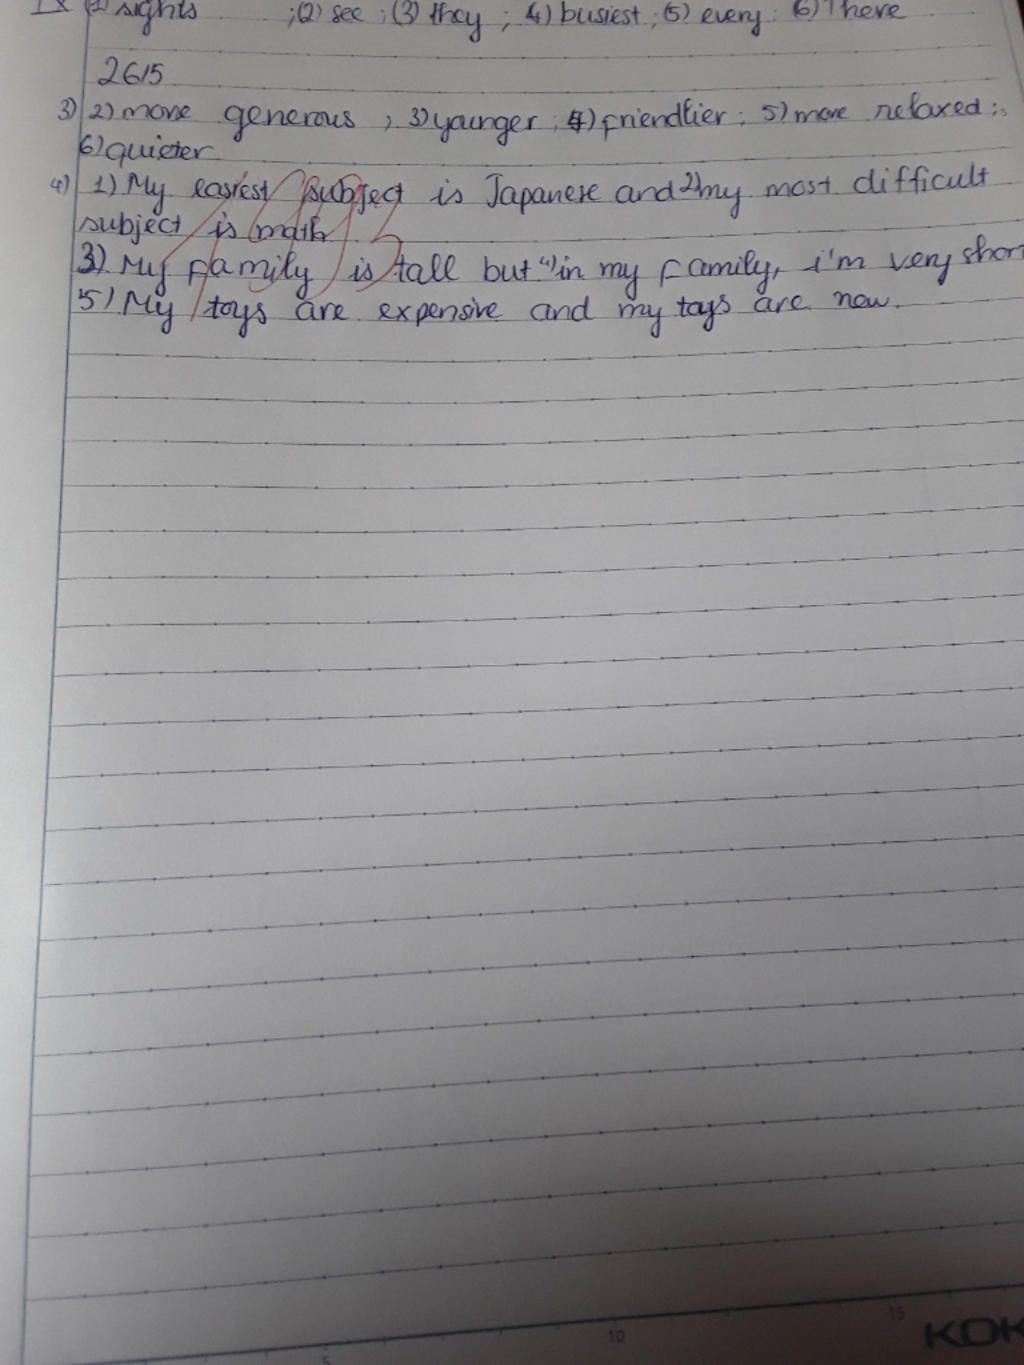 (1) sights ; (2) see ; (3) they ; 4) busiest ; (5) every ; 6) There
26/5
3) 2) more generous ; 3) younger ; 4) friendlier ; 5) more relaxed ;
6) quieter
4) 1) My easiest subject is Japanese and 2) my most difficult
subject is math
3) My family is tall but 4) in my family, i'm very short
5) My toys are expensive and my toys are new.
5
10
15
KOK